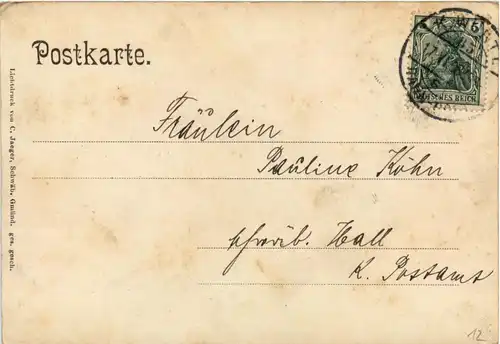 Postkarte.
Lichtdruck von C. Jaeger, Schwäb. Gmünd. ges. gesch.
DEUTSCHES REICH
Fräulein
Pauline Köhn
schwäb. Hall
K. Postamt
12